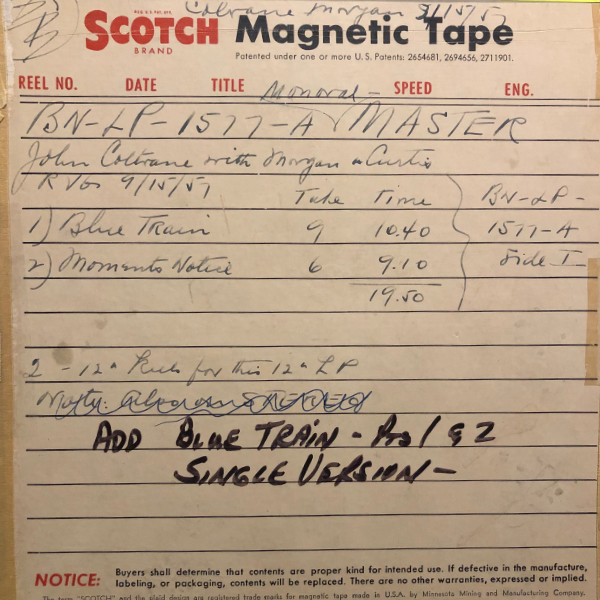 Coltrane Morgan 9/15/57
REG. U.S. PAT. OFF.
SCOTCH Magnetic Tape
BRAND
Patented under one or more U. S. Patents: 2654681, 2694656, 2711901.
REEL NO. DATE TITLE SPEED ENG.
Monoral-
BN-LP-1577-A MASTER
John Coltrane with Morgan & Curtis
RVG 9/15/57 Take Time BN-LP-
1) Blue Train 9 10.40 1577-A
2) Moments Notice 6 9.10 Side I
19.50
2 - 12" Reels for this 12" LP
ADD BLUE TRAIN - Pts 1 & 2
SINGLE VERSION -
NOTICE: Buyers shall determine that contents are proper kind for intended use. If defective in the manufacture,
labeling, or packaging, contents will be replaced. There are no other warranties, expressed or implied.
The term "SCOTCH" and the plaid design are registered trade marks for magnetic tape made in U.S.A. by Minnesota Mining and Manufacturing Company,